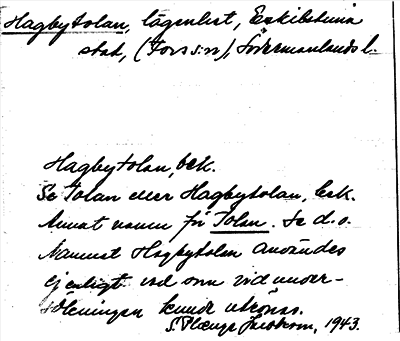 Hagbytolan, lägenhet, Eskilstuna
stad, (Fors sn), Södermanlands l.
Hagbytolan, bek.
Se Tolan eller Hagbytolan, bek.
Annat namn för Tolan. Se d.o.
Namnet Hagbytolan användes
ej enligt vad som vid under-
sökningen kunde utrönas.
S. Jacobson, 1943.